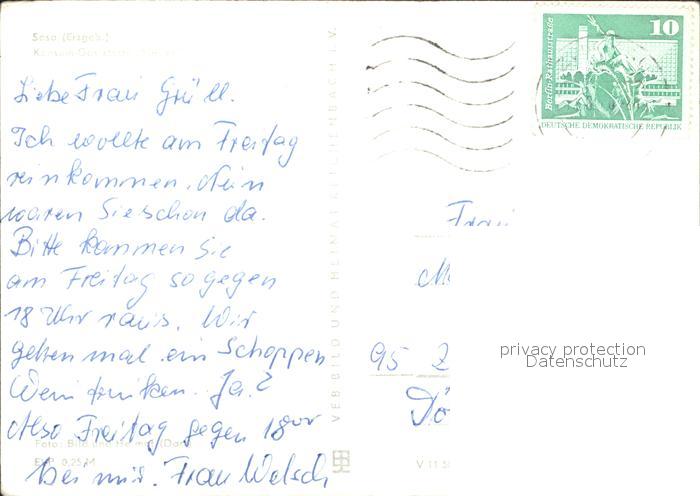 Sosa (Erzgeb.)
Liebe Frau Grüll.
Ich wollte am Freitag
reinkommen. Nein
waren Sie schon da.
Bitte kommen Sie
am Freitag so gegen
18 Uhr raus. Wir
gehen mal ein Schoppen
Wein trinken. Ja?
Also Freitag gegen 18 Uhr
bei mir. Frau Welsch
Foto: Bild und Heimat
EVP 0,25 M
VEB BILD UND HEIMAT REICHENBACH i. V.
V 11 5
10
Berlin-Rathausstraße
DEUTSCHE DEMOKRATISCHE REPUBLIK
Frau
M
95 Z
Dö
privacy protection
Datenschutz